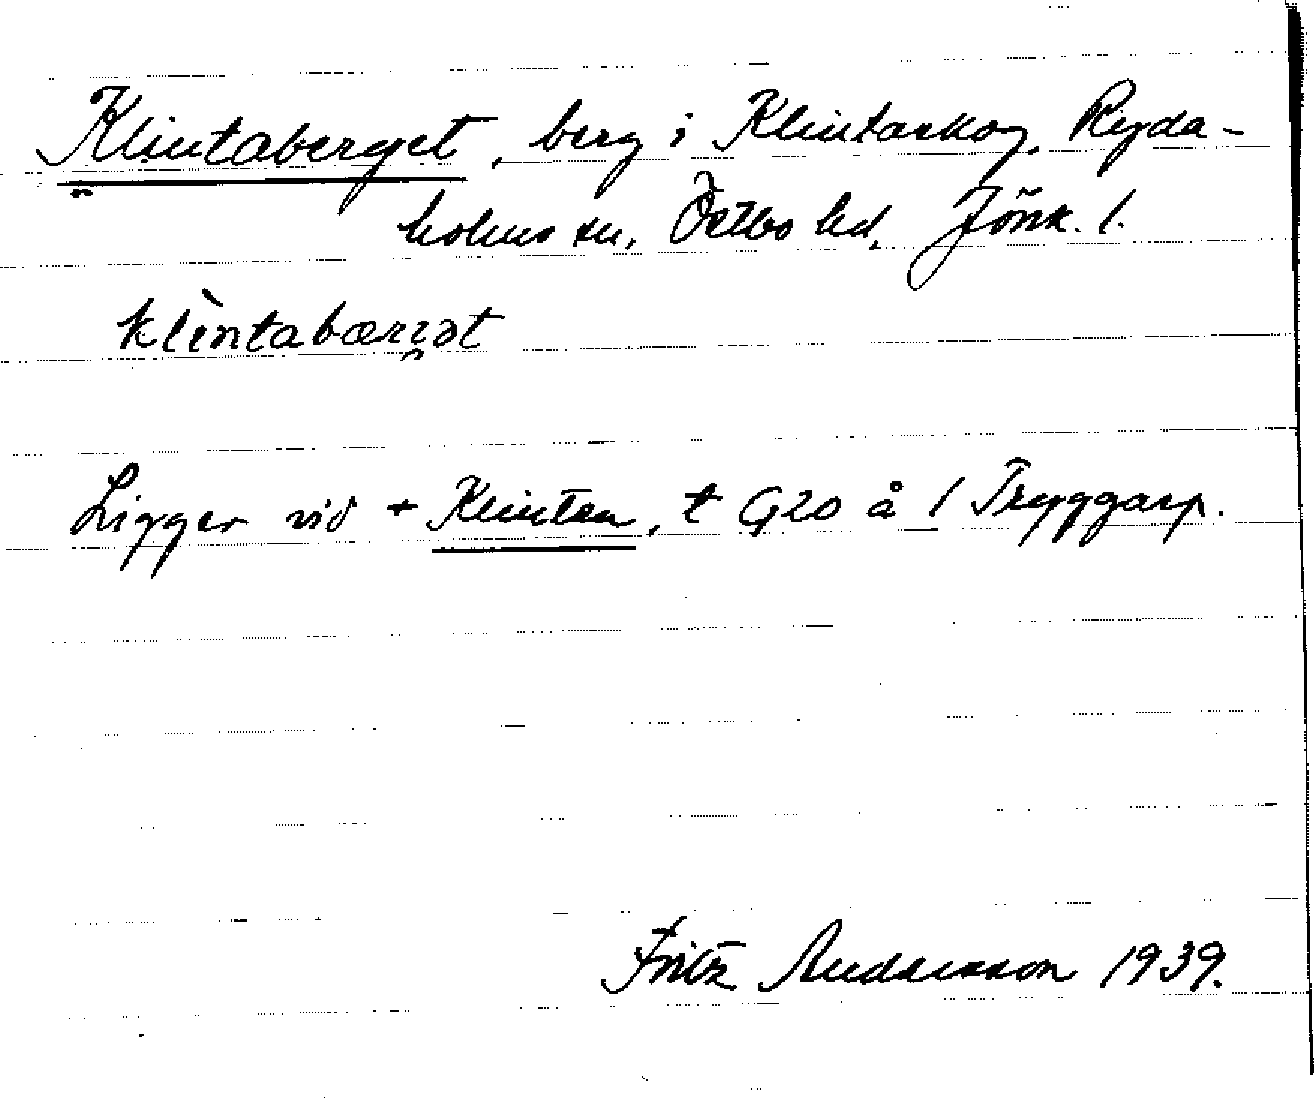 Klintaberget, berg i Klintaskog, Ryda-
holms sn, Östbo hd, Jönk. l.
klìntabærjət
Ligger vid + Klinten, t G20 å 1 Tryggarp.
Fritz Andersson 1939.